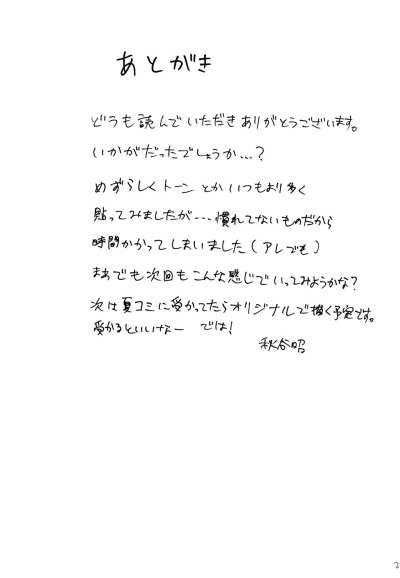 あとがき
どうも読んでいただきありがとうございます。
いかがだったでしょうか…?
めずらしくトーンとかいつもより多く
貼ってみましたが---慣れてないものだから
時間かかってしまいました(アレでも)
まぁでも次回もこんな感じでいってみようかな?
次は夏コミに受かってたらオリジナルで描く予定です。
受かるといいなー では!
秋谷昭
2